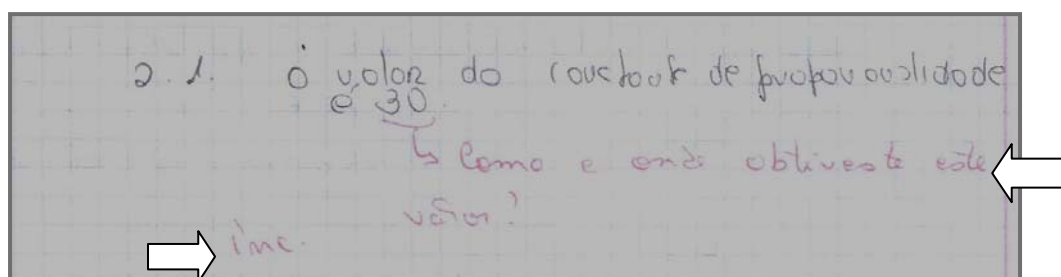 2.1. O valor do constante de proporcionalidade
é 30.
↳ Como e onde obtiveste este
valor?
inc.